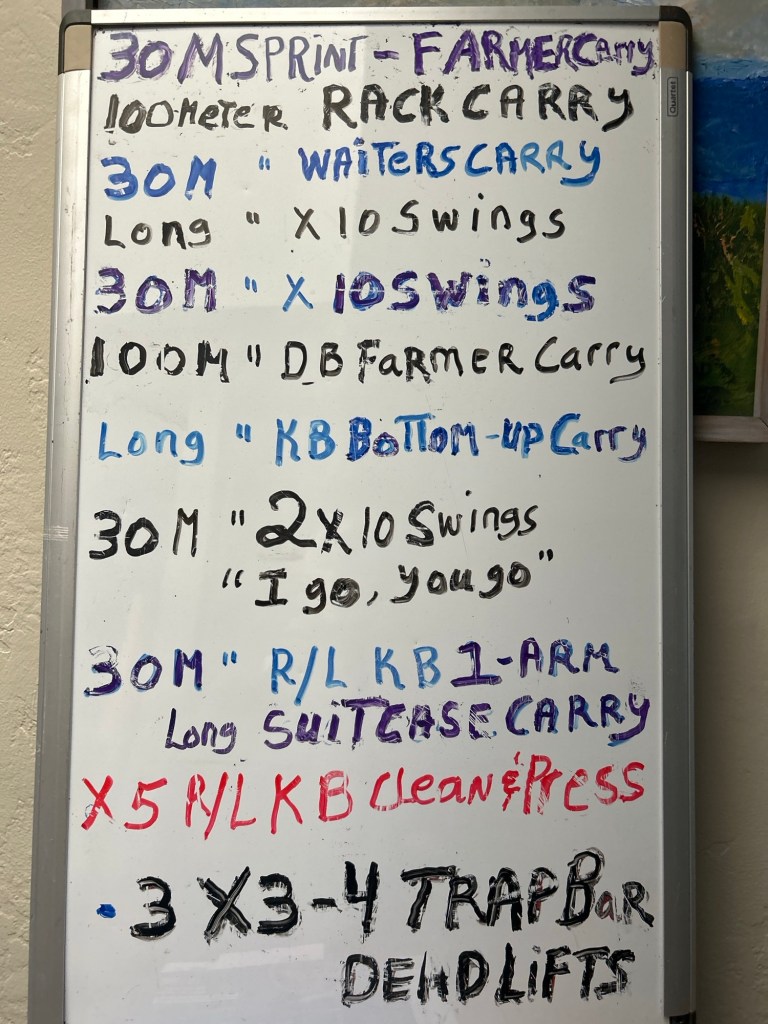 30M SPRINT - FARMER Carry
100 MeTeR RACK CARRY
30M " WAiTeRS CARRY
Long " X 10 Swings
30M " X 10 Swings
100M " DB FaRmeR Carry
Long " KB BoTTom-up Carry
30M " 2 X 10 Swings
"I go, you go"
30M " R/L KB 1-ARM
Long SUiTCASE CARRY
X5 R/L KB Clean & Press
• 3 X 3-4 TRAP BaR
DEADLiFTS
Quartet